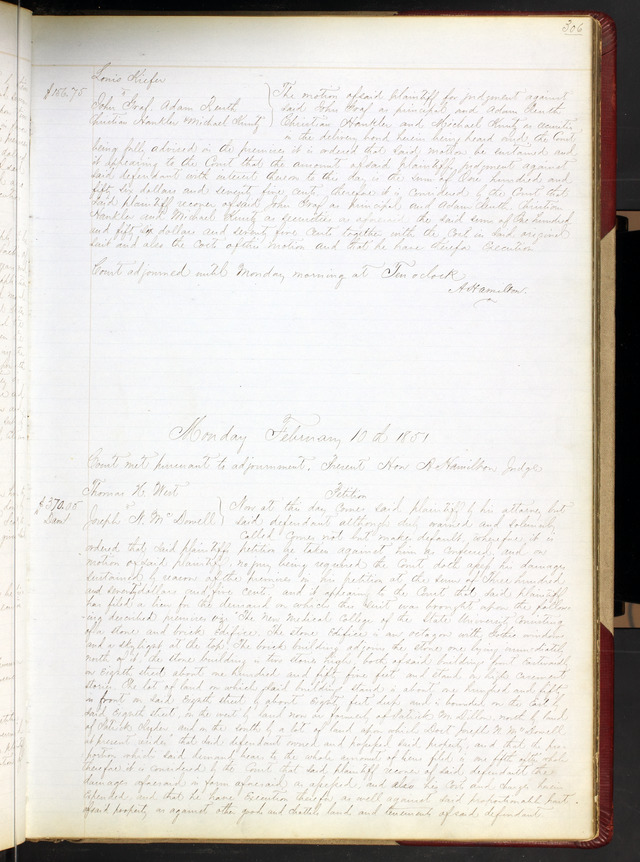 306
Louis Kiefer
$156.75 vs
John Graf Adam Keuth
Christian Hankler & Michael Kuntz
The motion of said plaintiff for judgment against
said John Graf as principal and Adam Keuth
Christian Hankler and Michael Kuntz as securities
in the delivery bond herein being heard and the Court
being fully advised in the premises it is ordered that said motion be sustained and
it appearing to the Court that the amount of said plaintiffs judgment against
said defendant with interest thereon to this day is the sum of One hundred and
fifty six dollars and seventy five cents, therefore it is considered by the Court that
said plaintiff recover of said John Graf as principal and Adam Keuth Christian
Hankler and Michael Kuntz as securities as aforesaid the said sum of One hundred
and fifty six dollars and seventy five cents together with the cost in said original
suit and also the costs of this motion and that he have therefor Execution
Court adjourned until Monday morning at Ten oclock
A Hamilton
Monday February 10th 1851
Court met pursuant to adjournment. Present Hon A Hamilton Judge
Thomas H. West
$370.05 vs
Dam'd
Joseph N. McDowell
Petition
Now at this day comes said plaintiff by his attorney but
said defendant although duly warned and solemnly
called comes not but makes default, wherefore it is
ordered that said plaintiffs petition be taken against him as confessed, and on
motion of said plaintiff, no jury being required the Court doth assess his damages
sustained by reason of the premises in his petition at the sum of Three hundred
and seventy dollars and five cents, and it appearing to the Court that said plaintiff
has filed a lien for the demand on which this suit was brought upon the follow
-ing described premises viz: The New Medical College of the State University consisting
of a stone and brick Edifice. The stone Edifice is an octagon with Gothic windows
and a skylight at the top. The brick building adjoins the stone one lying immediately
north of it the stone building is two stories high, both of said buildings front Eastwardly
on Eighth street about one hundred and fifty five feet and stand on high basement
stories The lot of land on which said buildings stand is about one hundred and fifty
in front on said Eighth street by about Eighty feet deep and is bounded on the East by
said Eighth street, on the west by land now or formerly of Patrick M. Dillon, north by land
of Patrick and on the south by a lot of land upon which Doct Joseph N. McDowell
at present resides that said defendant owned and possessed said property, and that the pro-
portion which said demand bears to the whole amount of liens filed is one fifth
therefore it is considered by the Court that said plaintiff recover of said defendant the
damages aforesaid in form aforesaid assessed, and also his costs and charges herein
expended, and that he have Execution therefor as well against said proportionable part
of said property as against other goods and chattels lands and tenements of said defendant